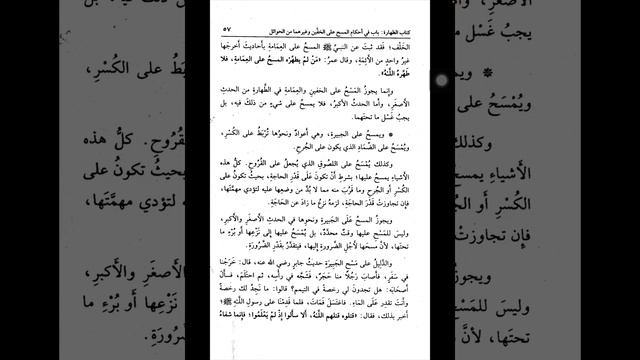 كتاب الطهارة: باب في أحكام المسح على الخفَّين وغيرهما من الحوائل ٥٧
الخَلَف؛ فقد ثبتَ عن النبيِّ ﷺ المسحُ على العِمَامةِ بأحاديثَ أخرجَها
غيرُ واحدٍ من الأئمَّةِ، وقال عمرُ: «مَنْ لَم يطهِّرْه المسحُ على العِمَامةِ، فلا
طَهَّرَه اللَّهُ».
وإنما يجوزُ المَسْحُ على الخفينِ والعِمَامةِ في الطَّهارةِ من الحدثِ
الأصغَرِ، وأما الحدثُ الأكبرُ، فلا يمسحُ على شيءٍ من ذلكَ فيه، بل
يجبُ غَسْل ما تحتَهما.
* ويمسحُ على الجبيرةِ، وهي أعوادٌ ونحوُها تُرْبَطُ على الكَسْرِ،
ويُمْسَحُ على الضِّمَادِ الذي يكون على الجُرحِ.
وكذلك يُمْسَحُ على اللصُوقِ الذي يُجعلُ على القُرُوحِ. كلُّ هذه
الأشياءِ يمسحُ عليها؛ بشرطِ أنْ تكونَ على قَدْرِ الحاجةِ، بحيثُ تكونُ على
الكَسْرِ أو الجُرحِ وما قَرُبَ منه مما لا بُدَّ من وضعِها عليه لتؤدي مهمَّتَها،
فإن تجاوزتْ قَدْرَ الحاجَةِ، لزمَهُ نزعُ ما زادَ عن الحَاجَةِ.
ويجوزُ المسحُ عَلَى الجَبيرةِ ونحوِها في الحدثِ الأصغَرِ والأكبرِ،
وليسَ للمَسْحِ عليها وقتٌ محدَّدٌ، بل يُمْسَحُ عليها إلى نَزْعِها أو بُرْءِ ما
تحتَها، لأنَّ مسحَها لأجْلِ الضَّرورةِ إليها، فيتقدَّرُ بقَدْرِ الضَّرُورَةِ.
والدَّليلُ على مَسْحِ الجَبِيرَةِ حديثُ جابرٍ رضي الله عنه، قال: خَرَجْنا
في سَفَرٍ، فأصابَ رَجُلًا منا حَجَرٌ، فَشَجَّه في رأسِه، ثم احتَلَمَ، فسألَ
أصحابَه: هل تجدونَ لي رخصةً في التيممِ؟ قالوا: ما نَجِدُ لكَ رخصةً
وأنتَ تقدِر على المَاءِ. فاغتسَلَ فَمَاتَ، فلما قَدِمْنا على رسولِ اللَّهِ ﷺ؛
أخبر بذلك، فقال: «قتلوه قتلهم اللَّهُ، ألا سألوا إذْ لَمْ يَعْلَمُوا؛ فإنما شفاءُ